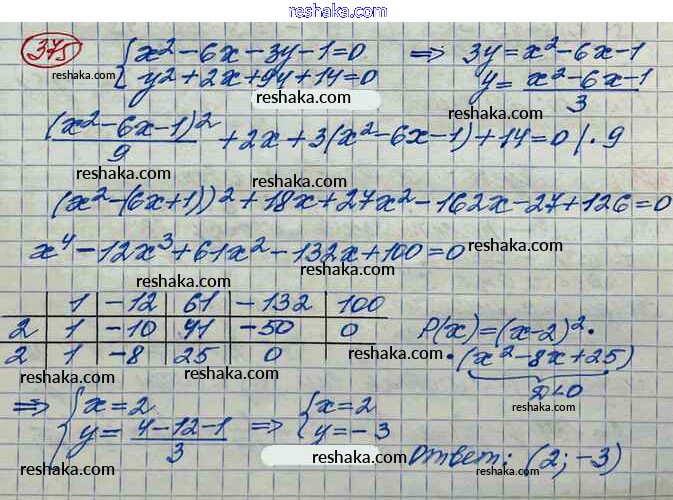 Больше решений смотри на
reshaka.ru
375 { x² - 6x - 3y - 1 = 0 ⇒ 3y = x² - 6x - 1
{ y² + 2x + 9y + 14 = 0 y = (x² - 6x - 1)/3
reshaka.com
reshaka.com
reshaka.com
(x² - 6x - 1)²/9 + 2x + 3(x² - 6x - 1) + 14 = 0 | · 9
reshaka.com
reshaka.com
(x² - (6x + 1))² + 18x + 27x² - 162x - 27 + 126 = 0
x⁴ - 12x³ + 61x² - 132x + 100 = 0
reshaka.com
reshaka.com
1 | -12 | 61 | -132 | 100
2 | 1 | -10 | 41 | -50 | 0
2 | 1 | -8 | 25 | 0
P(x) = (x - 2)² ·
· (x² - 8x + 25)
D < 0
reshaka.com
reshaka.com
reshaka.com
reshaka.com
⇒ { x = 2
{ y = (4 - 12 - 1)/3 ⇒ { x = 2
{ y = -3
reshaka.com
reshaka.com
Ответ: (2; -3)
reshaka.com